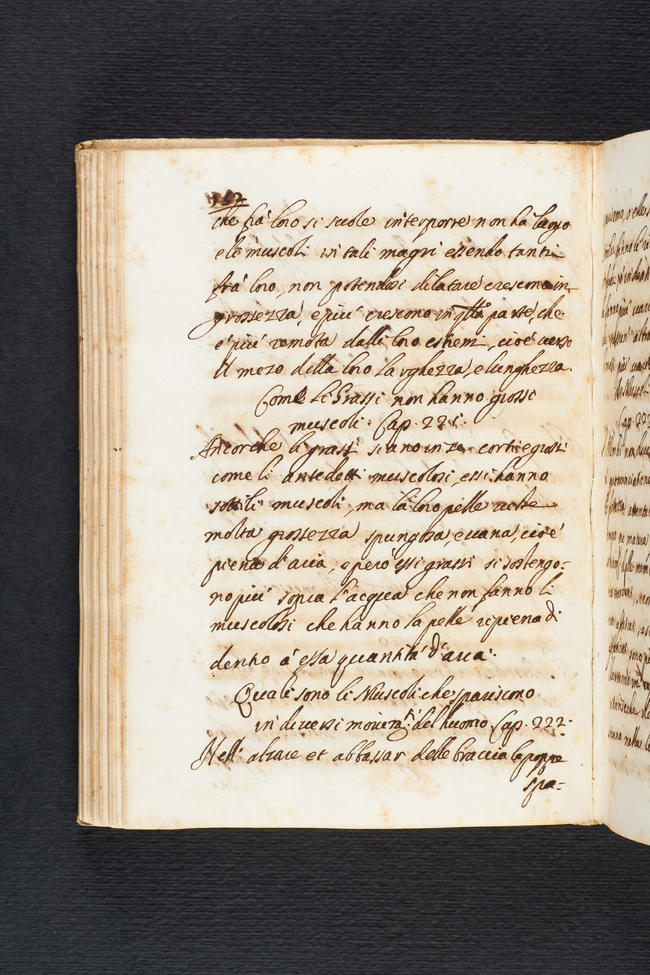 che frà loro si suole interporre non hà luogo
e le muscoli in tali magri essendo tanti
frà loro, non potendosi dilatare crescono in
grossezza, e più crescono in qlla parte, che
e più remota dalli loro estremi, cioè verso
il mezo della loro larghezza, e lunghezza.
Come li Grassi non hanno grossi
muscoli. Cap. 221.
Ancorche li grassi siano in se corti e grossi
come li antedetti muscolosi, essi hanno
sottili muscoli, ma la loro pelle veste
molta grossezza spungosa, e vana, cioè
piena d'aria, e però essi grassi si sostengo=
no più sopra l'acqua che non fanno li
muscolosi che hanno la pelle ripiena di
dentro à essa quantità d'aria.
Quali sono li Muscoli che spariscono
in diversi movim.ti del huomo. Cap. 222.
Nell' alzare et abbassar delle braccia la poppa
spa=